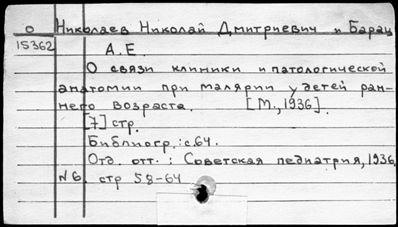 О Николаев Николай Дмитриевич и Барац
15362 А.Е.
О связи клиники и патологической
анатомии при малярии у детей ран-
него возраста. [М., 1936].
[7] стр.
Библиогр.: с. 64.
Отд. отт.: Советская педиатрия, 1936,
№ 6. стр 58-64